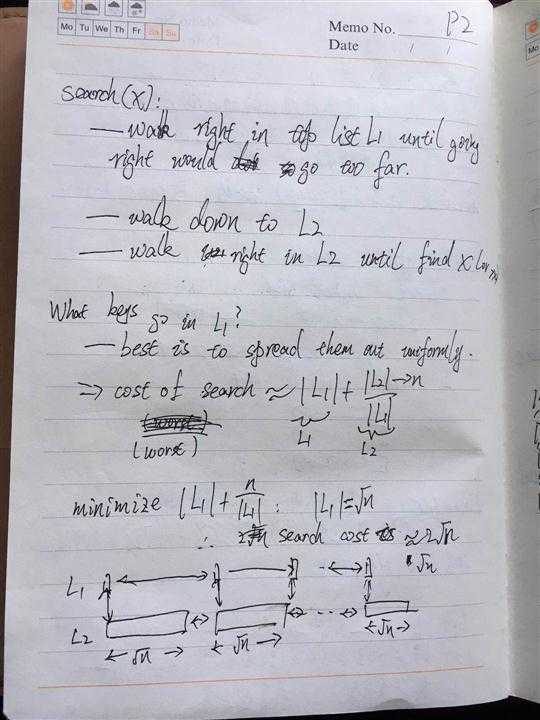 Mo Tu We Th Fr Sa Su
Memo No. P2
Date / /
search(x):
— walk right in top list L1 until going
right would go too far.
— walk down to L2
— walk right in L2 until find x (or
What keys go in L1?
— best is to spread them out uniformly.
⇒ cost of search ≈ |L1| + |L2|→n / |L1|
(worst) L1 L2
minimize |L1| + n/|L1| : |L1|=√n
∴ search cost ≈ 2√n
L1 √n
L2
√n √n √n
Mo